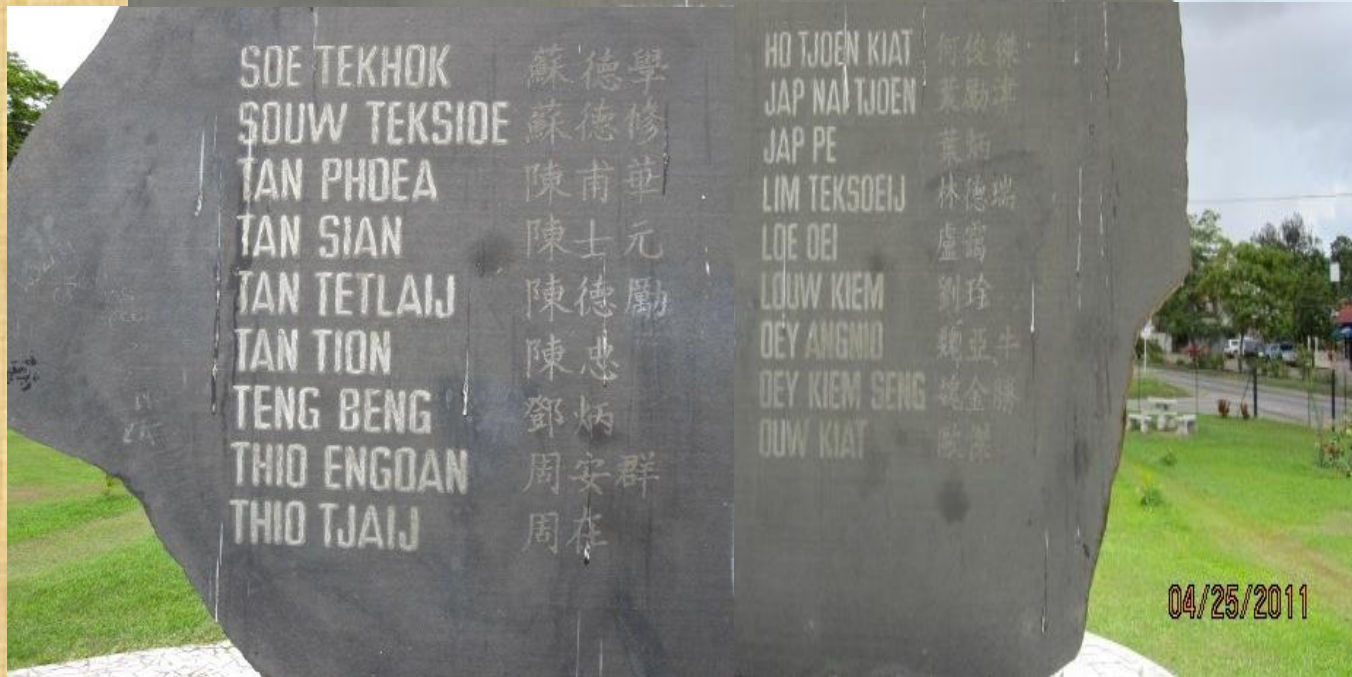 SOE TEKHOK 蘇德學
SOUW TEKSIOE 蘇德修
TAN PHOEA 陳甫華
TAN SIAN 陳士元
TAN TETLAIJ 陳德勵
TAN TION 陳忠
TENG BENG 鄧炳
THIO ENGOAN 周安群
THIO TJAIJ 周在
HO TJOEN KIAT 何俊傑
JAP NAI TJOEN 葉勵津
JAP PE 葉炳
LIM TEKSOEIJ 林德瑞
LOE OEI 盧靄
LOUW KIEM 劉玲
OEY ANGNIO 魏亞牛
OEY KIEM SENG 魏金勝
OUW KIAT 歐傑
04/25/2011